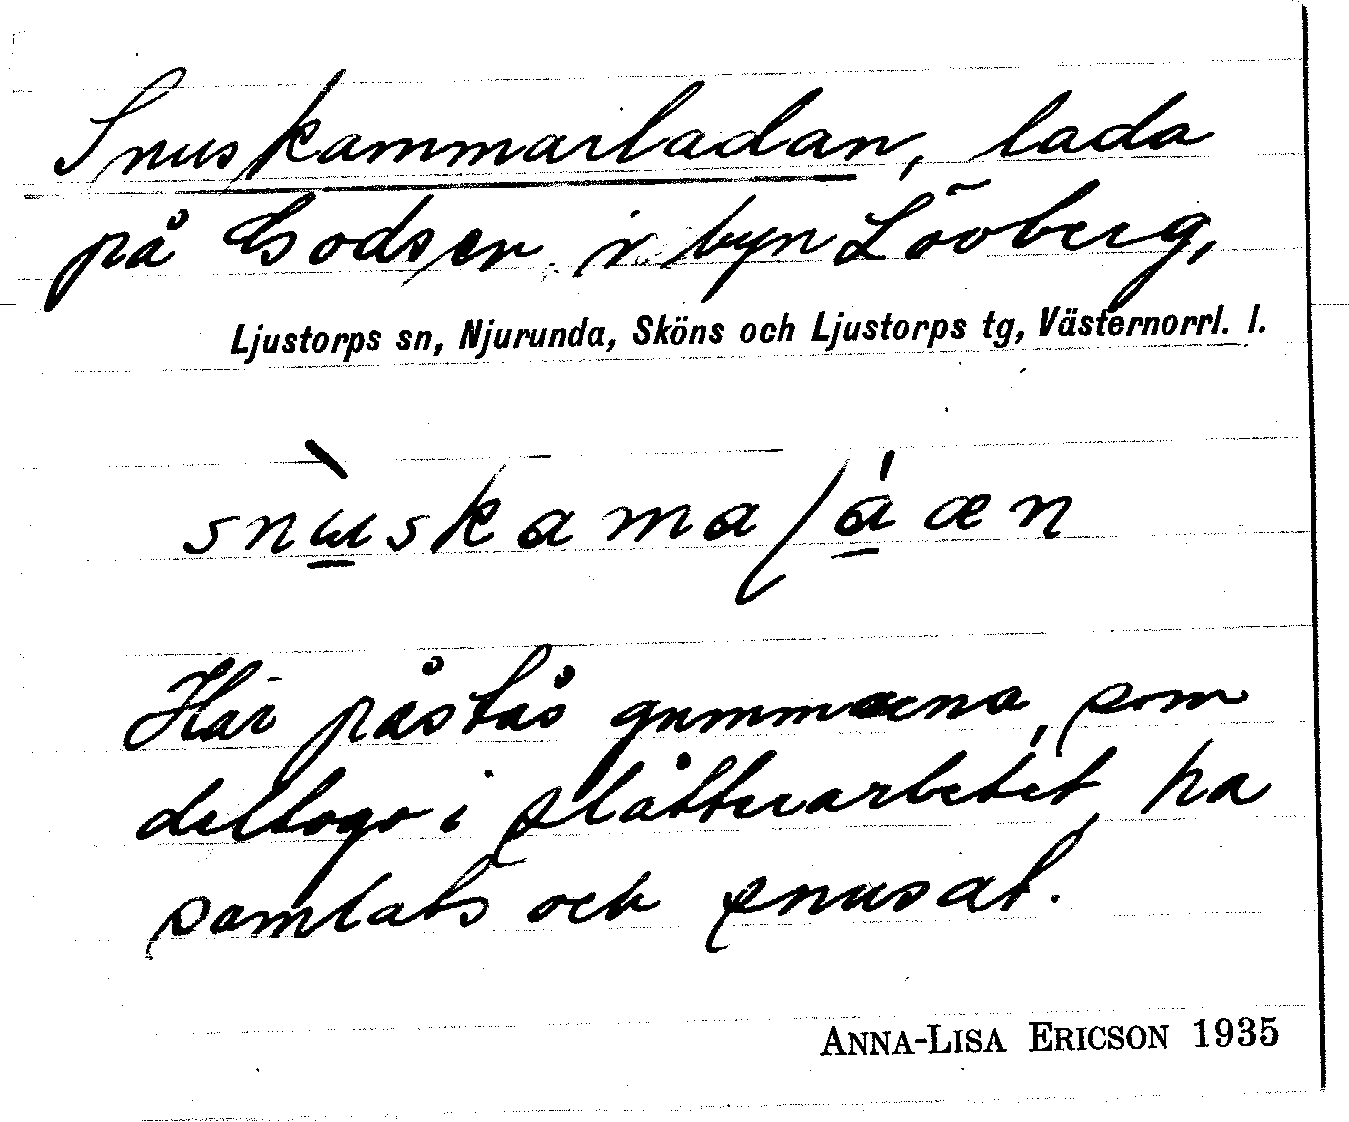 Snuskammarladan, lada
på Godsen i byn Lövberg,
Ljustorps sn, Njurunda, Sköns och Ljustorps tg, Västernorrl. l.
snùskamaláæn
Här påstås gummorna, som
deltogo i slåtterarbetet, ha
samlats och snusat.
ANNA-LISA ERICSON 1935